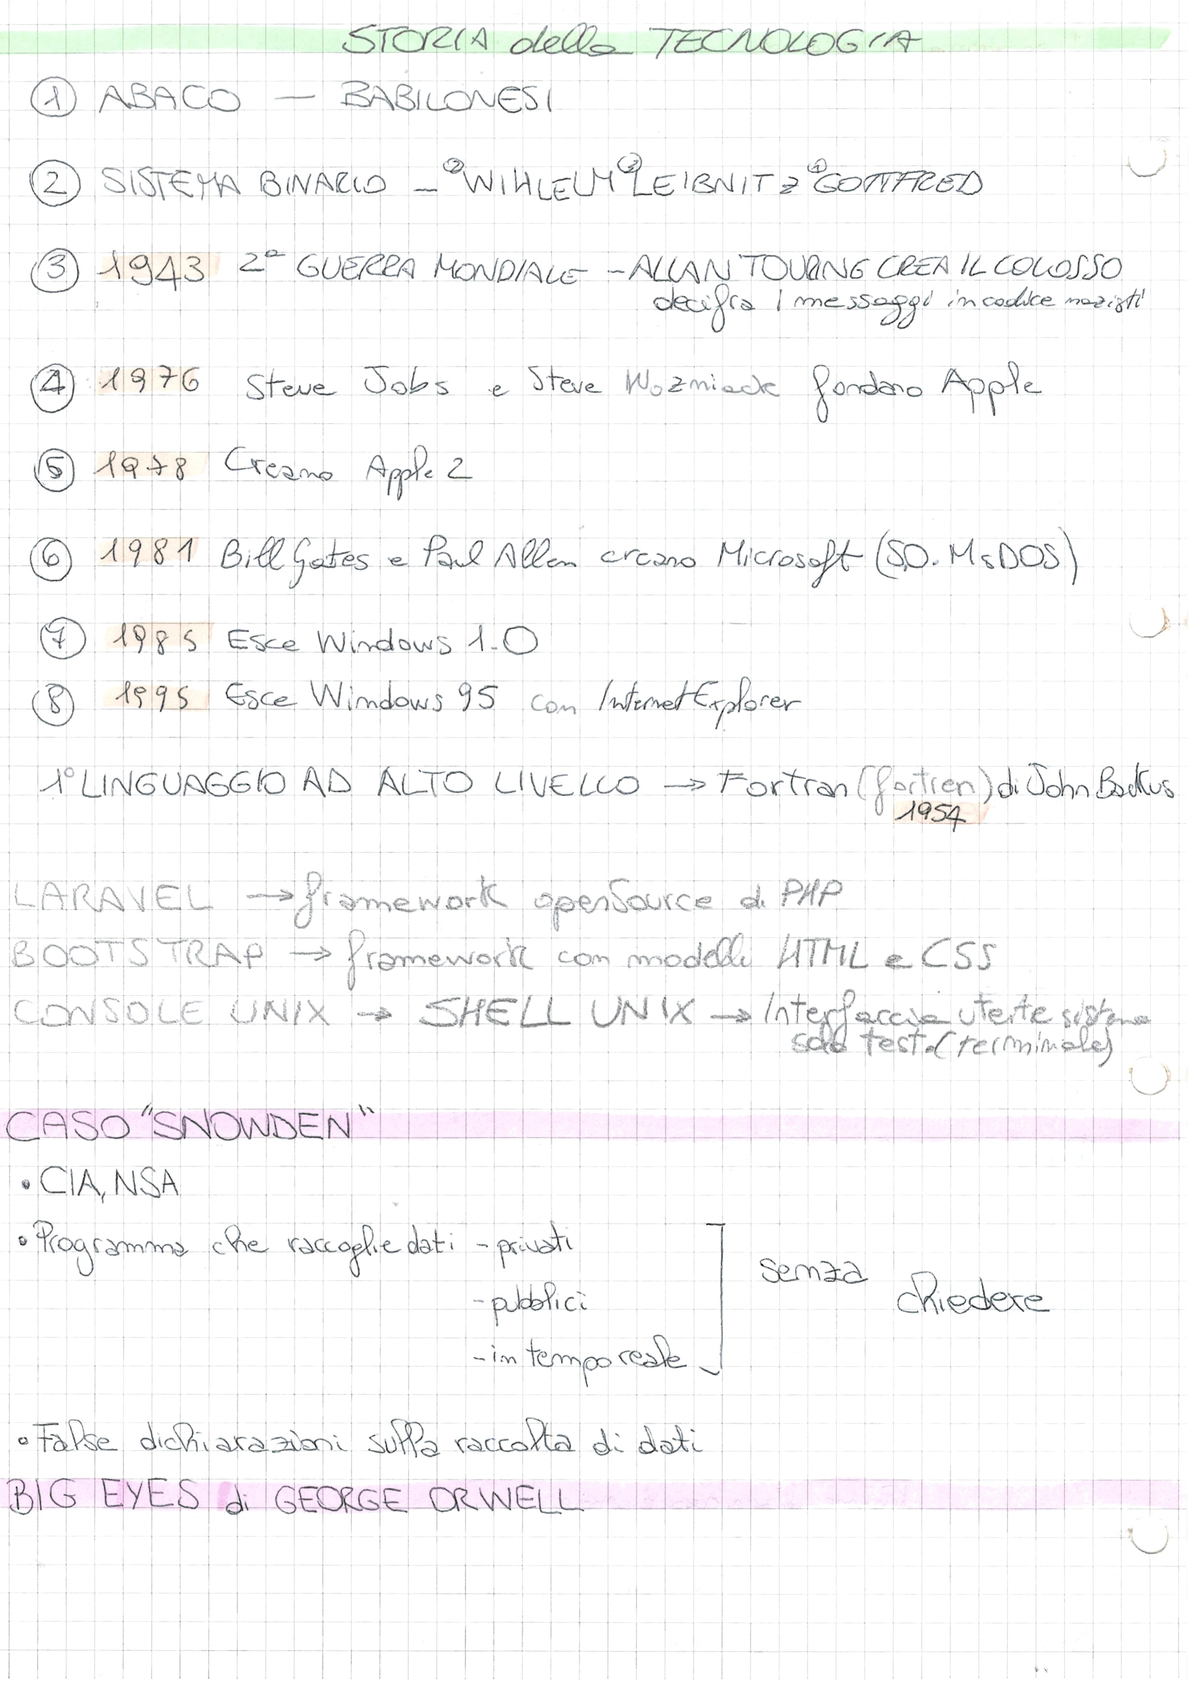 STORIA della TECNOLOGIA
① ABACO — BABILONESI
② SISTEMA BINARIO - ②WIHLEUM ③LEIBNITZ ①GOTTFRED
③ 1943 2ª GUERRA MONDIALE - ALLAN TOURING CREA IL COLOSSO
decifra i messaggi in codice nazisti
④ 1976 Steve Jobs e Steve Wozniack fondano Apple
⑤ 1978 Creano Apple 2
⑥ 1981 Bill Gates e Paul Allen creano Microsoft (S.O. MsDOS)
⑦ 1985 Esce Windows 1.0
⑧ 1995 Esce Windows 95 con Internet Explorer
1° LINGUAGGIO AD ALTO LIVELLO → Fortran (fortren) di John Backus
1954
LARAVEL → framework openSource di PHP
BOOTSTRAP → framework con modelli HTML e CSS
CONSOLE UNIX → SHELL UNIX → Interfaccia utente sistema
solo test. (terminale)
CASO "SNOWDEN"
• CIA, NSA
• Programma che raccoglie dati - privati
- pubblici
- in tempo reale
senza chiedere
• False dichiarazioni sulla raccolta di dati
BIG EYES di GEORGE ORWELL